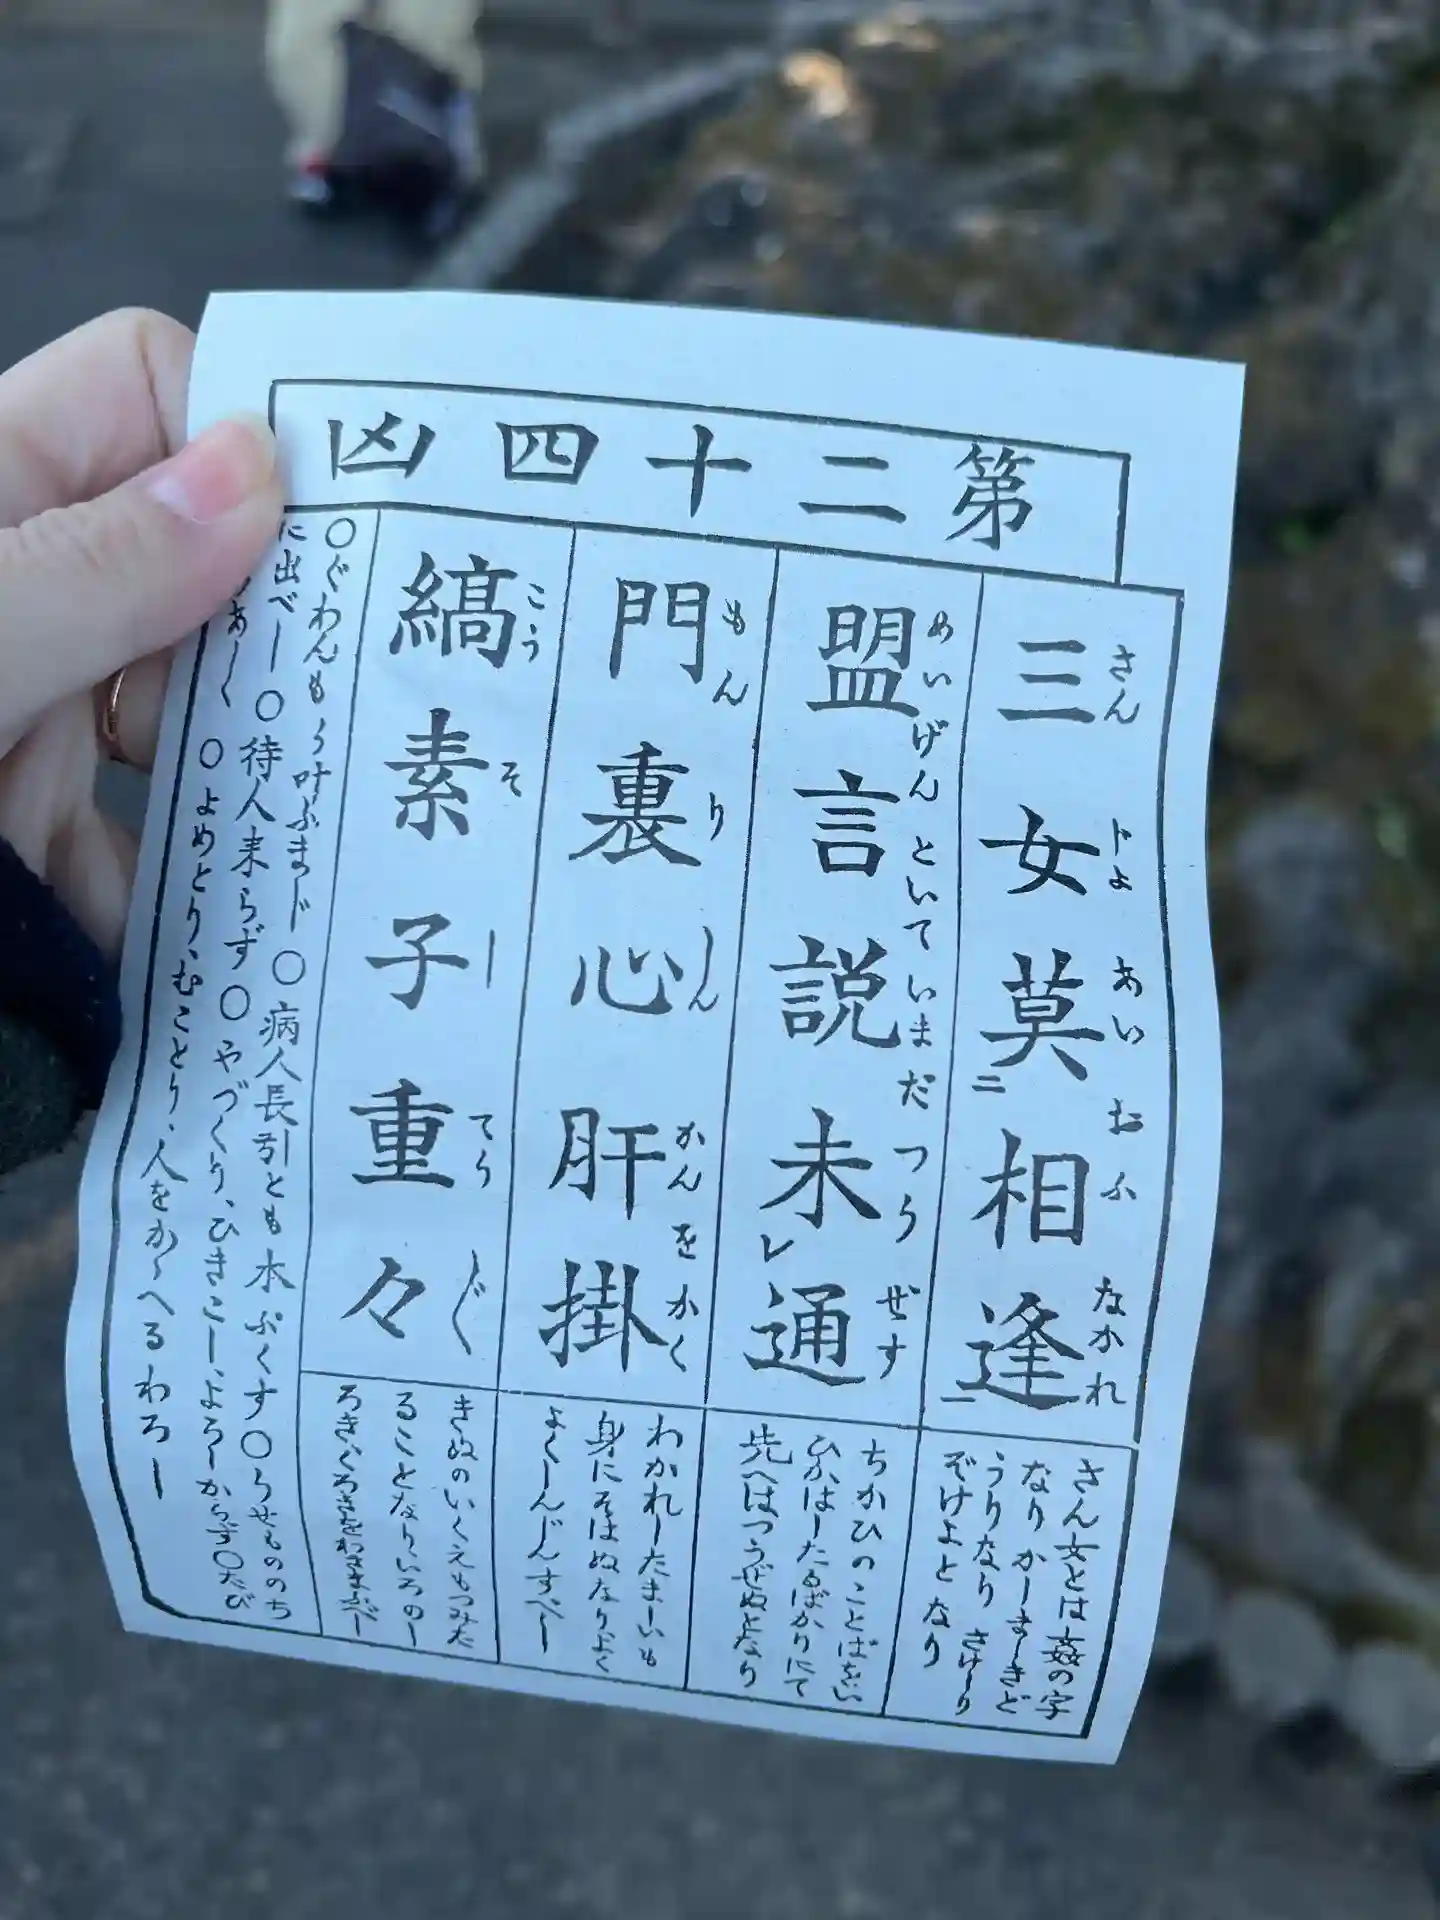 第二十四凶
三女莫相逢
さんじよあいおふなかれ
二
一
盟言説未通
めいげんといていまだつうぜす
レ
門裏心肝掛
もんりしんかんをかく
縞素子重々
こうそしてうじく
さん女とは姦の字
なりかしましきど
うりなりさけしり
ぞけよとなり
ちかひのことばをい
ひかはしたるばかりにて
先へはつうぜぬとなり
わかれしたましいも
身にそはぬなりよく
よくしんじんすべし
きぬのいくえもつみた
ることなりいろのし
ろきくろきをわきまふべし
○ぐわんもう叶ふまじ○病人長引とも本ぷくす○うせもののち
に出べし○待人来らず○やづくり、ひきこし、よろしからず○たび
あしく○よめとり、むことり、人をかゝへるわろし